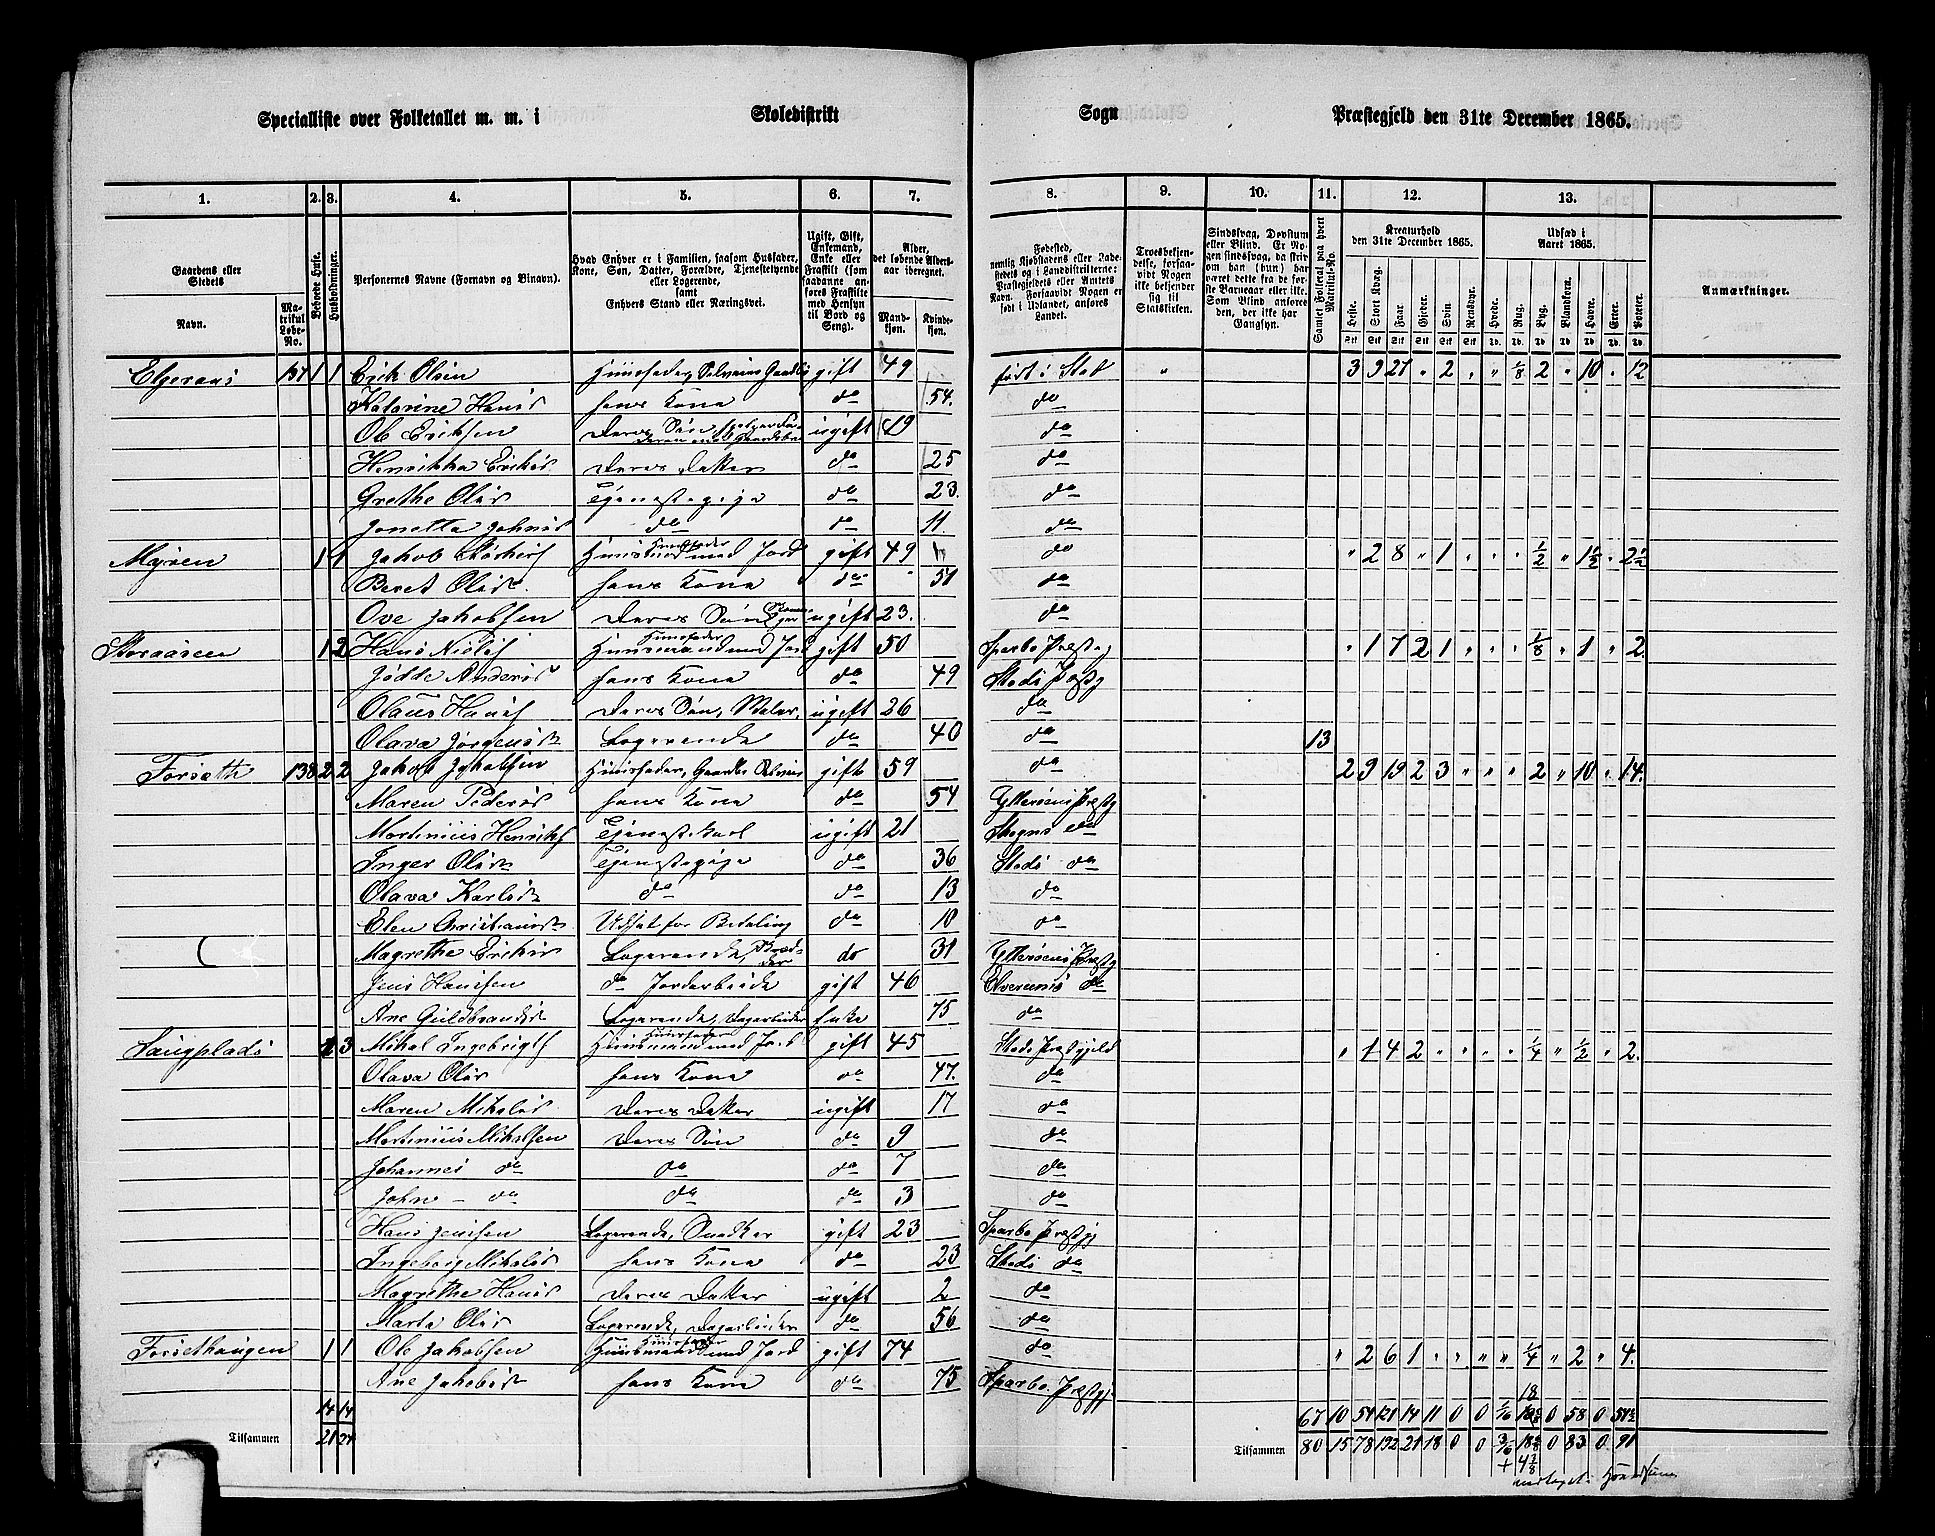 Specialliste over Folketallet m. m. i Skoledistrikt Sogn Præstegjeld den 31te December 1865.
1. 2. 3. 4. 5. 6. 7. 8. 9. 10. 11. 12. 13. 1.
Gaardens eller Stedets Navn. Matrikul Løbe-No. Beboede Huse. Husholdninger. Personernes Navne (Fornavn og Binavn). Hvad Enhver er i Familien, saasom Husfader, Kone, Søn, Datter, Forældre, Tjenestetyende eller Logerende, samt Enhvers Stand eller Næringsvei. Ugift, Gift, Enkemand, Enke eller Fraskilt (som saadanne anføres Fraskilte med Hensyn til Bord og Seng). Alder, det løbende Aldersaar iberegnet. Mandkjøn. Kvindekjøn.
Fødested, nemlig Kjøbstadens eller Ladestedets og i Landdistrikterne: Præstegjeldets eller Amtets Navn. Forsaavidt Nogen er født i Udlandet, anføres Landet. Troesbekjendelse, forsaavidt Nogen ikke bekjender sig til Statskirken. Sindssvag, Døvstum eller Blind. Er Nogen sindssvag, da skrives om han (hun) har været dette fra de første Barneaar eller ikke. Som Blind anføres den, der ikke har Gangsyn. Samlet Folketal paa hvert Matrikul-No. Kreaturhold den 31te December 1865. Udsæd i Aaret 1865. Anmærkninger.
Heste. Stort Kvæg. Faar. Gjeder. Svin. Rensdyr. Hvede. Rug. Byg. Blandkorn. Havre. Erter. Poteter.
Elgeraas 137 1 1 Erik Olsen Huusfader, Selveier Gaardb gift 49 født i Stod " 3 9 27 " 2 " " 1/8 2 " 10 " 12
Katarine Hansd hans Kone do 54. do
Ole Eriksen Deres Søn ugift 19 do
Henrikka Eriksd Deres Datter do 25 do
Grethe Olsd Tjenestepige do 23. do
Jonetta Johnsd do do 11. do
Myren 1 1 Jakob Huusfader Huusmand med Jord gift 49 do " 2 8 " 1 " " " 1/2 " 1 1/2 " 2 1/2
Beret Olsd hans Kone do 51 do
Ove Jakobsen Deres Søn ugift 23. do
1 2 Hans Nielsf Huusfader Huusmand med Jord gift 50 Sparbo Præstg " 1 7 2 1 " " " 1/8 " 1 " 2.
Jødde Andersd hans Kone do 49 Stods Præstg
Olaus Hansf Deres Søn, Maler, ugift 26 do
Olava Jørgensd Logerende do 40 do 13
Forseth 138 2 2 Jakob Jakobsen Huusfader, Gaardb Selveier gift 59 do 2 9 19 2 3 " " " 2 " 10 " 14.
Maren Pedersd hans Kone do 54 Ytterøens Præstg
Martinius Henriksf Tjenestekarl ugift 21 do
Inger Olsd Tjenestepige do 36 Stods do
Olava Karlsd do do 13 do
Elen Christiansd Udsat for Betaling do 10 do
Magrethe Eriksd Logerende, do 31 Ytterøens Præstg
Jens Hansen do Jordarbeide gift 46 Elverums do
Ane Guldbrandsd Logerende, Dagarbeider Enke 75 do
Saugplads 1 3 Mikal Ingebrigtsf Huusfader Huusmand med Jord gift 45 Stods Præstgjeld " 1 4 2 " " " " 1/4 " 1/2 " 2.
Olava Olsd hans Kone do 47. do
Maren Mikalsd Deres Datter ugift 17 do
Martinius Mikalsen Deres Søn do 9 do
Johannes do do do 7 do
John – do do do 3 do
Hans Jensen Logerende, Snedker gift 23 Sparbo Præstgj
Ingeborg Mikalsd hans Kone do 23 Stods do
Magrethe Hansd Deres Datter ugift 2 do
Marta Olsd Logerende, Dagarbeider do 56 do
Forsethaugen 1 1 Ole Jakobsen Huusfader Huusmand med Jord gift 74 do " 2 6 1 " " " " 1/4 " 2 " 4.
Ane Jakobsd hans Kone do 75 Sparbo Præstgj
14 14 67 10 51 121 14 11 0 0 0 58 0 51 1/2
Tilsammen 21 21 Tilsammen 80 15 78 192 21 18 0 0 0 83 0 91